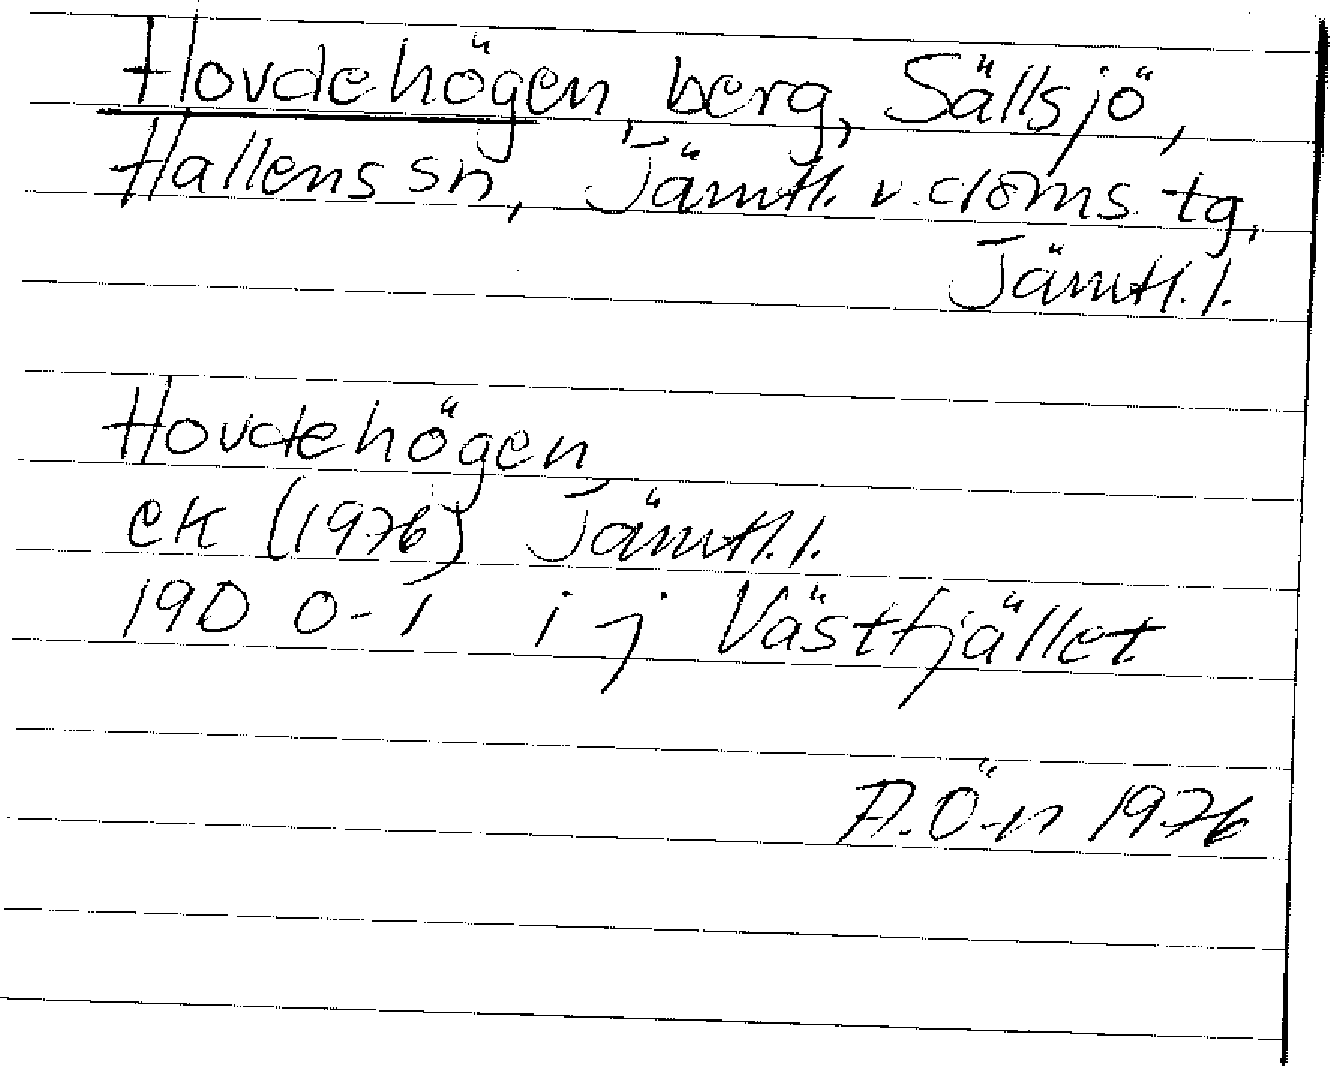 Hovdehögen, berg, Sällsjö,
Hallens sn, Jämtl. v. doms. tg,
Jämtl. l.
Hovdehögen
ek (1976) Jämtl. l.
19D 0-1 i j Västfjället
A. Ö-n 1976